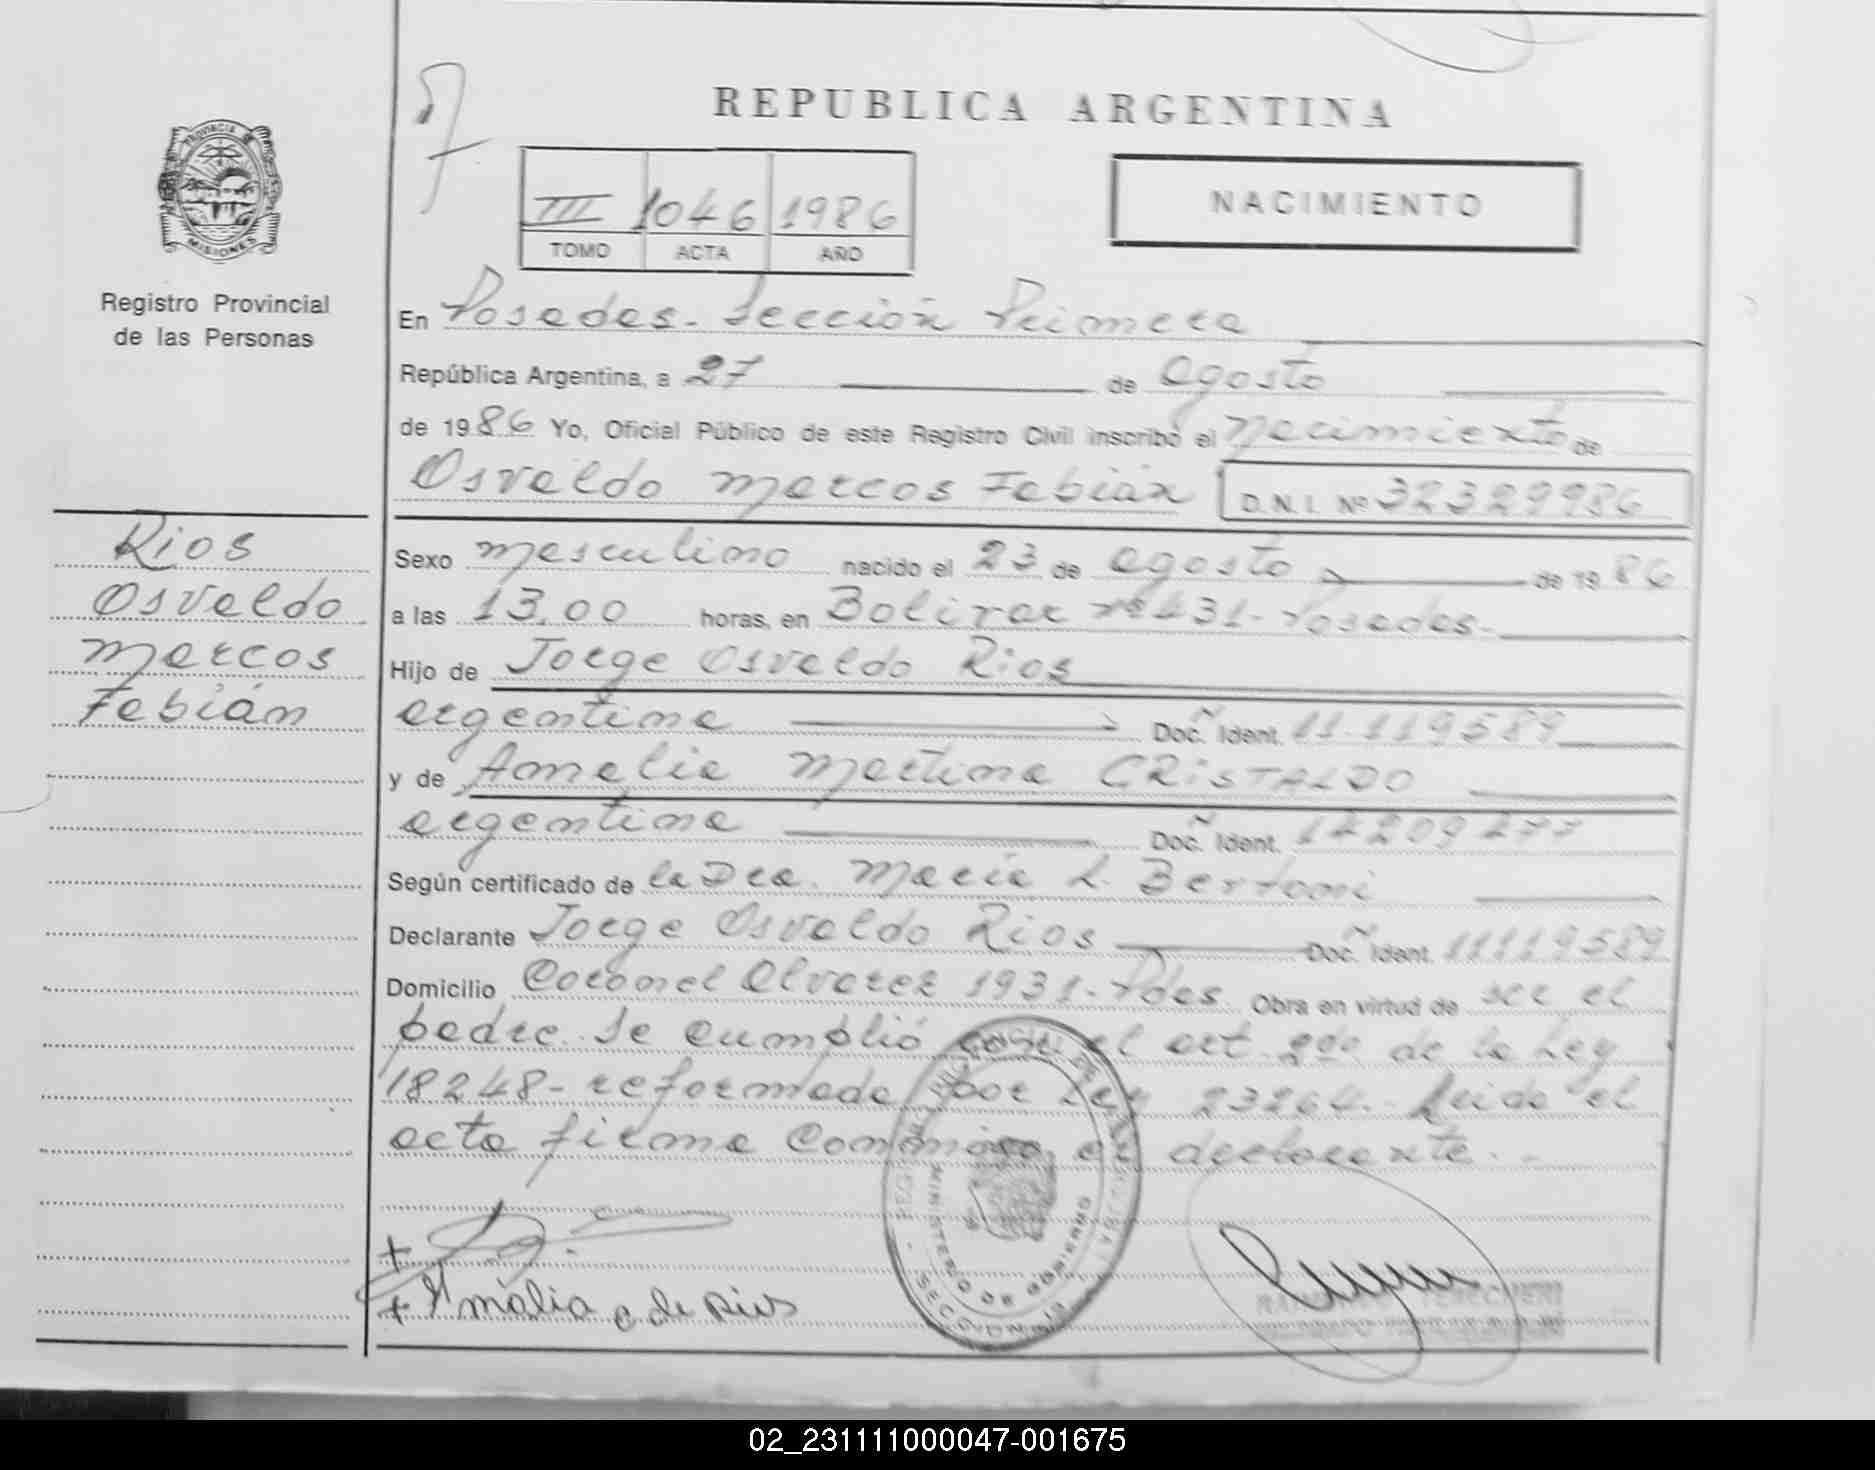 REPUBLICA ARGENTINA
PROVINCIA DE
MISIONES
Registro Provincial
de las Personas
III 1046 1986
TOMO ACTA AÑO
NACIMIENTO
En Posadas - Sección Primera
República Argentina, a 27 de agosto
de 1986 Yo, Oficial Público de este Registro Civil inscribo el nacimiento de
Osvaldo Marcos Fabián D.N.I. Nº 32329986
Rios
Osvaldo
Marcos
Fabián
Sexo masculino nacido el 23 de agosto de 1986
a las 13,00 horas, en Bolivar nº 431 - Posadas -
Hijo de Jorge Osvaldo Rios
argentino Doc. Ident. 11.119589
y de Amalia Martina CRISTALDO
argentina Doc. Ident.
Según certificado de la Dra. Maria L. Bertoni
Declarante Jorge Osvaldo Rios Doc. Ident. 11119589
Domicilio Coronel Alvarez 1931 - Pdas Obra en virtud de ser el
padre. Se cumplió con el art. 2do de la Ley
18248 - reformada por Ley 23264. - Leida el
acta firma conmigo el declarante. -
MINISTERIO DE GOBIERNO
SECCION
+
+ Amalia C de Rios
02_231111000047-001675